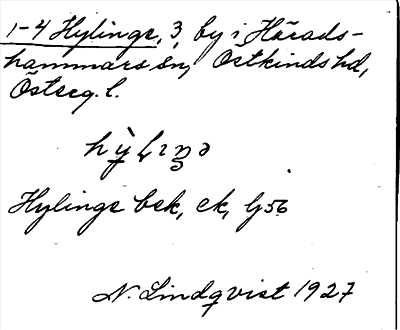 1-4 Hylinge, 3, by i Härads-
hammars sn, Östkinds hd,
Östерg. l.
Hylinge bsk, ek, Gj56
N. Lindqvist 1927